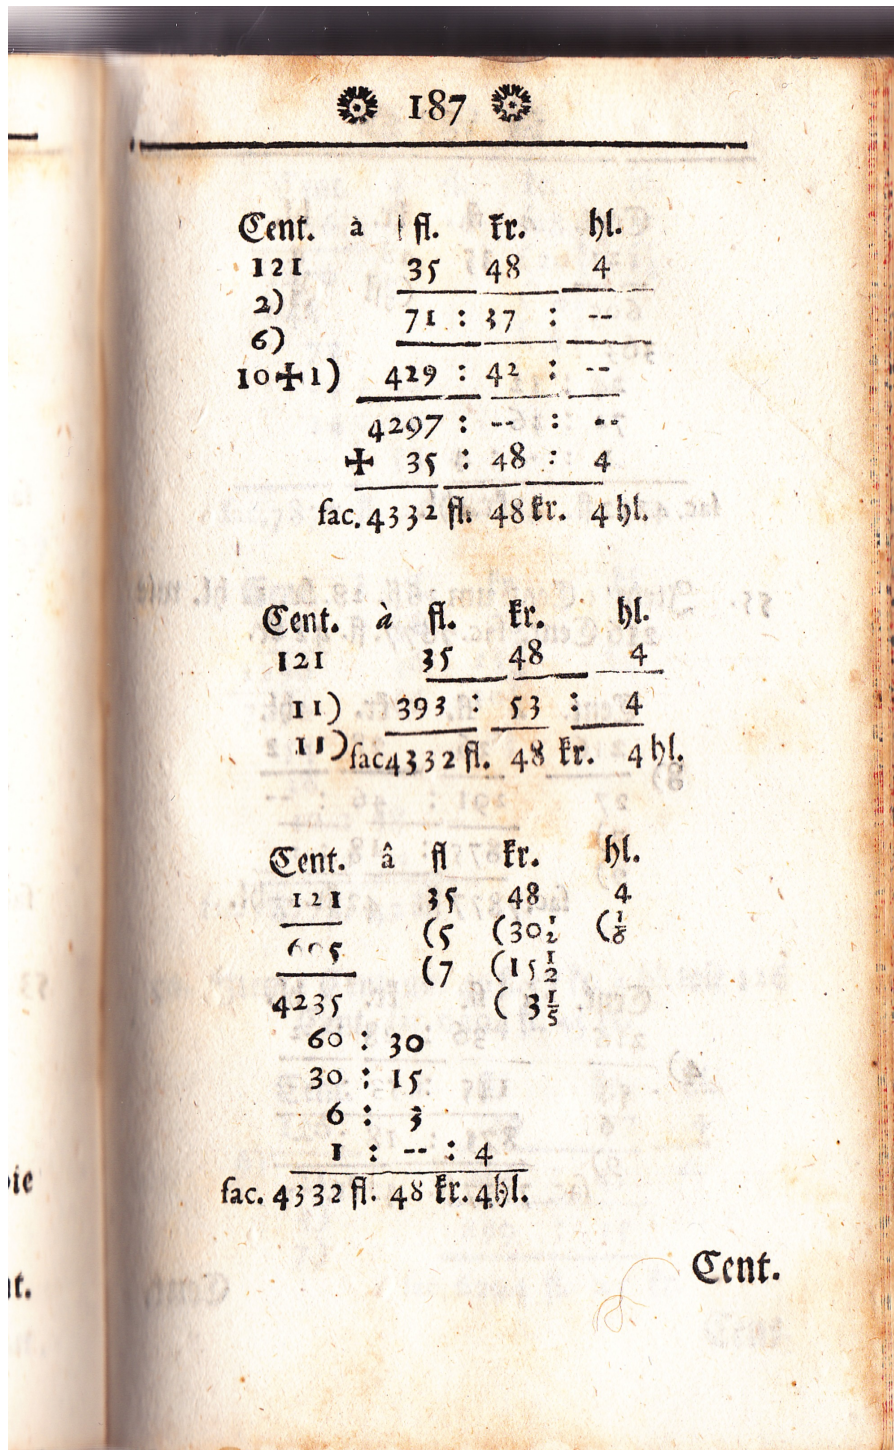 187
Cent. à fl. kr. hl.
121 35 48 4
2) 71 : 37 : --
6)
10+1) 429 : 42 : --
4297 : -- : --
+ 35 : 48 : 4
fac. 4332 fl. 48 kr. 4 hl.
Cent. à fl. kr. hl.
121 35 48 4
11) 393 : 53 : 4
11) fac 4332 fl. 48 kr. 4 hl.
Cent. â fl kr. hl.
121 35 48 4
605 (5 (30½ (⅛
(7 (15½
4235 ( 3⅕
60 : 30
30 : 15
6 : 3
1 : -- : 4
fac. 4332 fl. 48 kr. 4 hl.
Cent.